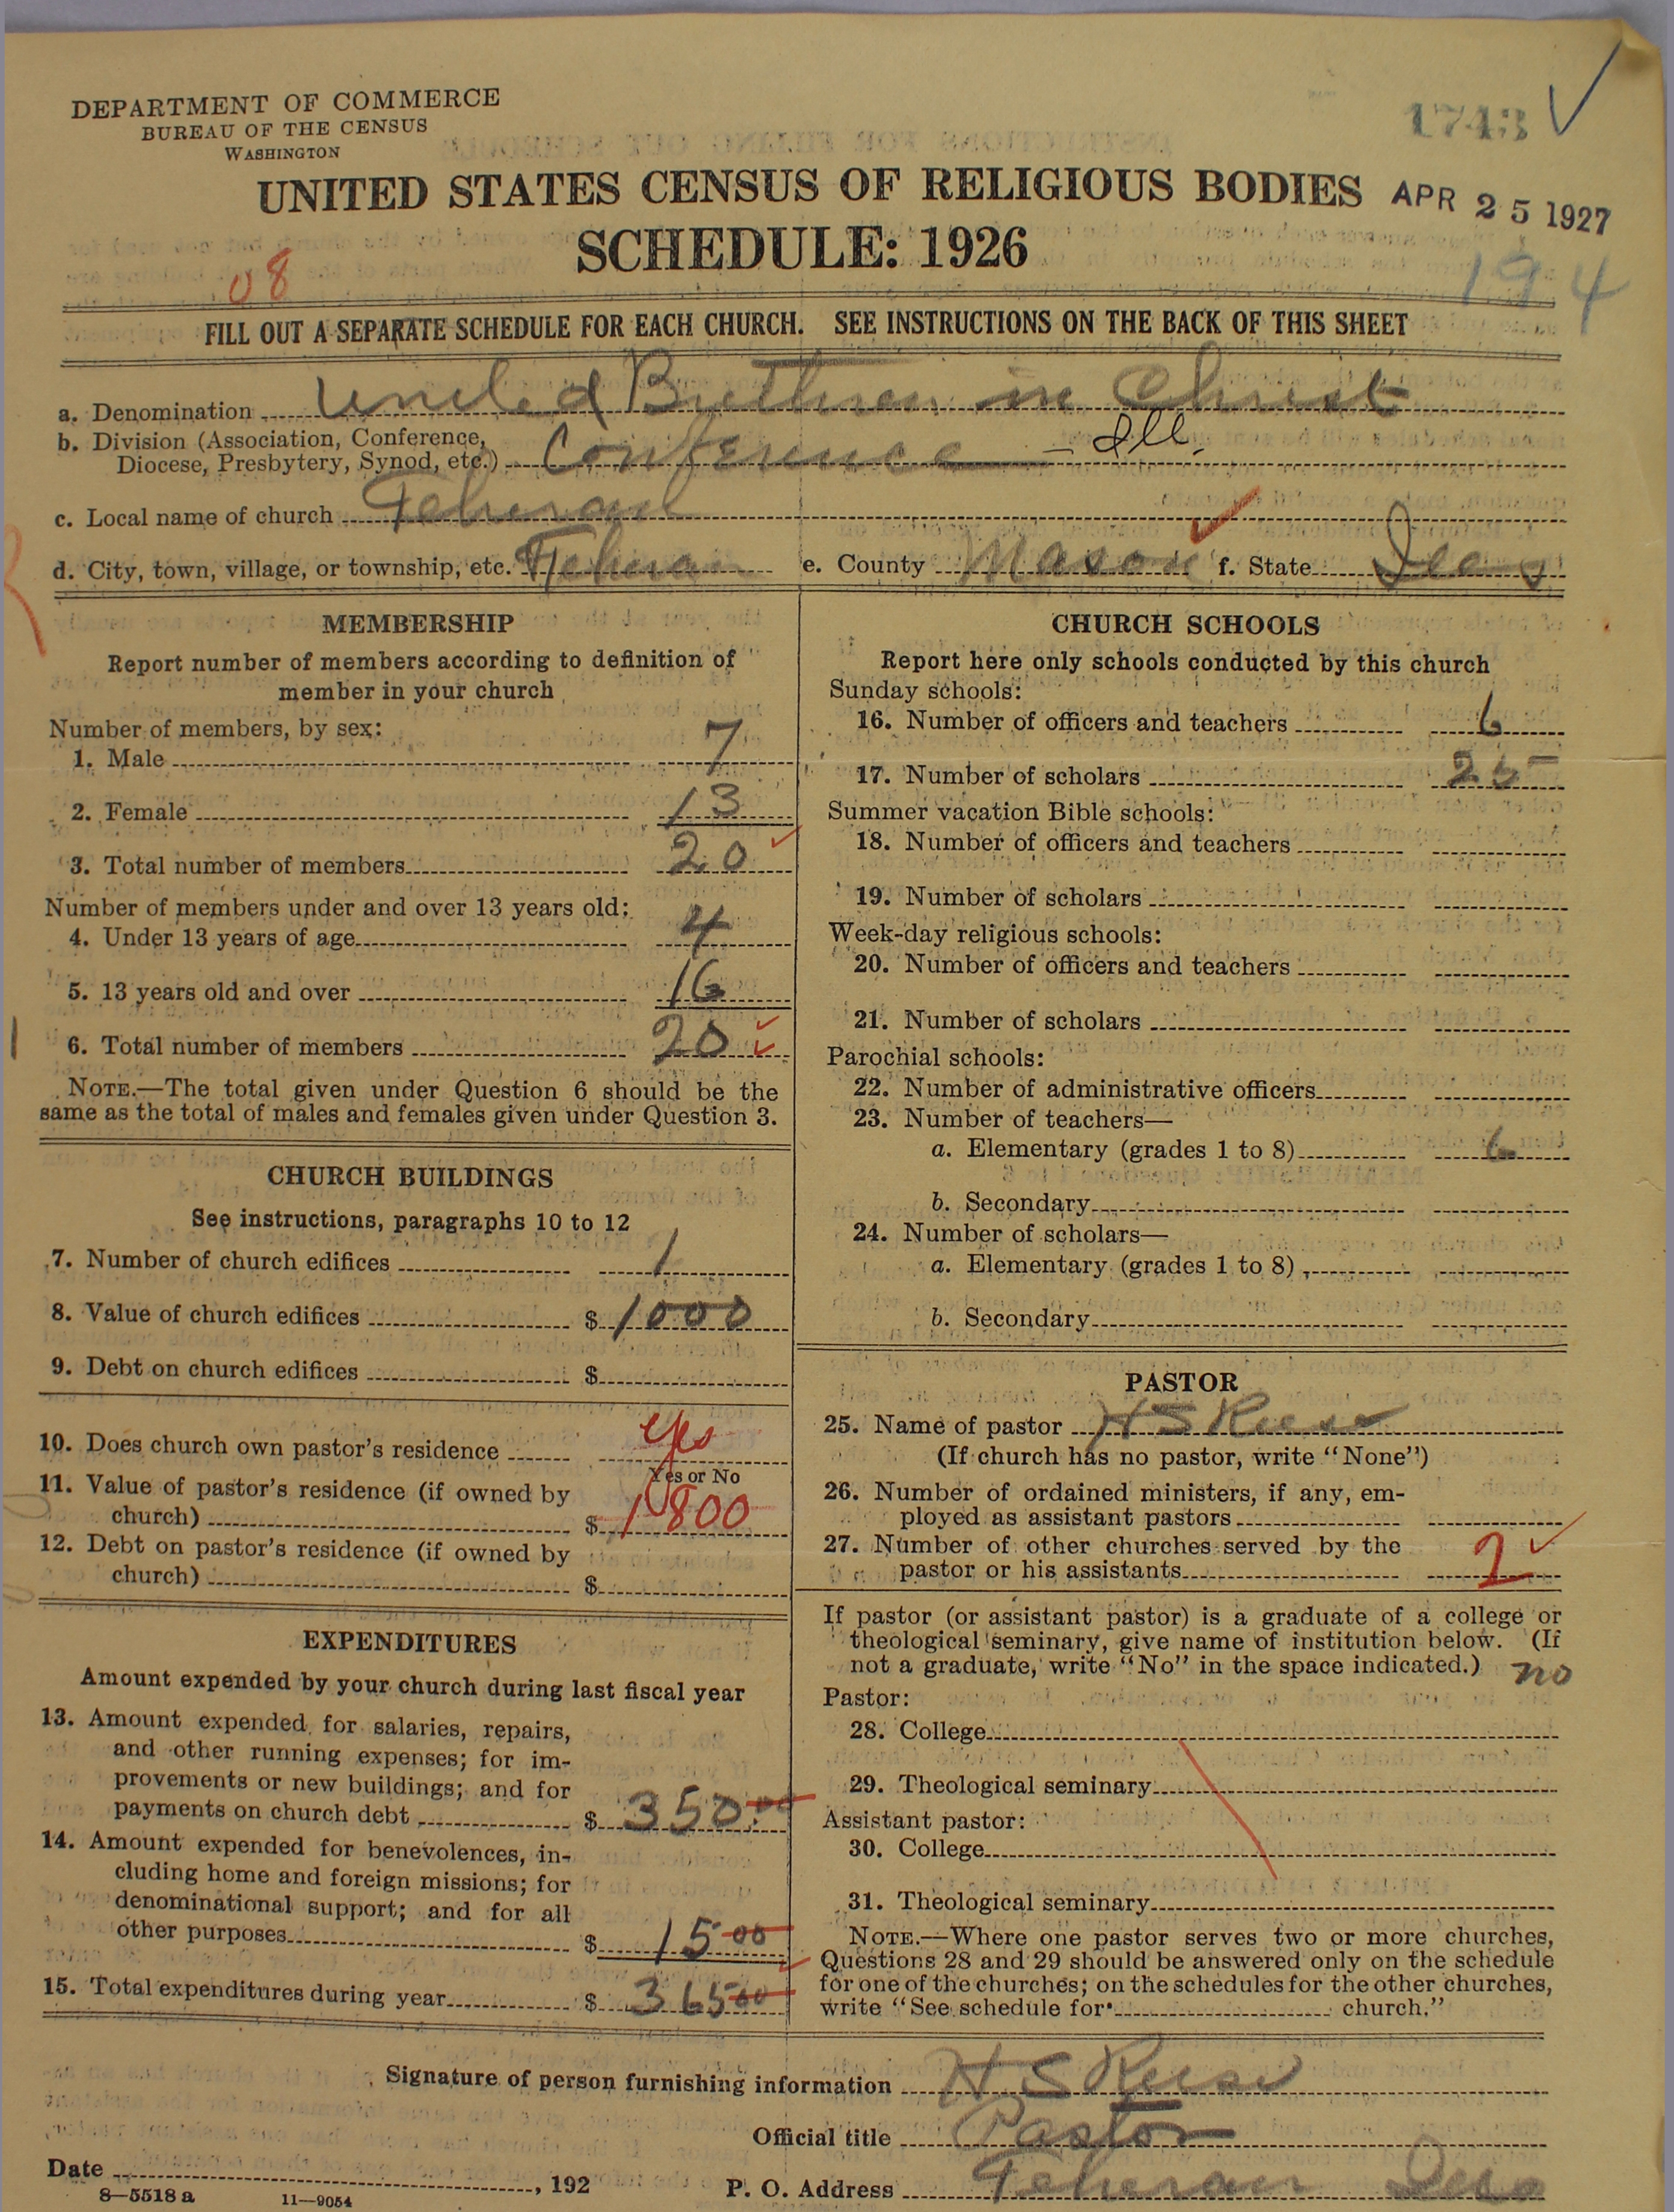 DEPARTMENT OF COMMERCE
BUREAU OF THE CENSUS
WASHINGTON
1743
UNITED STATES CENSUS OF RELIGIOUS BODIES
APR 25 1927
SCHEDULE: 1926
08
194
FILL OUT A SEPARATE SCHEDULE FOR EACH CHURCH. SEE INSTRUCTIONS ON THE BACK OF THIS SHEET
a. Denomination United Brethren in Christ
b. Division (Association, Conference,
Diocese, Presbytery, Synod, etc.) Conference — Ill.
c. Local name of church Teheran
d. City, town, village, or township, etc. Teheran e. County Mason f. State Ills
MEMBERSHIP
Report number of members according to definition of
member in your church
Number of members, by sex:
1. Male 7
2. Female 13
3. Total number of members 20
Number of members under and over 13 years old:
4. Under 13 years of age 4
5. 13 years old and over 16
6. Total number of members 20
NOTE.—The total given under Question 6 should be the
same as the total of males and females given under Question 3.
CHURCH BUILDINGS
See instructions, paragraphs 10 to 12
7. Number of church edifices 1
8. Value of church edifices $ 1000
9. Debt on church edifices $
10. Does church own pastor's residence yes
Yes or No
11. Value of pastor's residence (if owned by
church) $ 1800
12. Debt on pastor's residence (if owned by
church) $
EXPENDITURES
Amount expended by your church during last fiscal year
13. Amount expended for salaries, repairs,
and other running expenses; for im-
provements or new buildings; and for
payments on church debt $ 350.00
14. Amount expended for benevolences, in-
cluding home and foreign missions; for
denominational support; and for all
other purposes $ 15 00
15. Total expenditures during year $ 365 00
CHURCH SCHOOLS
Report here only schools conducted by this church
Sunday schools:
16. Number of officers and teachers 6
17. Number of scholars 25
Summer vacation Bible schools:
18. Number of officers and teachers
19. Number of scholars
Week-day religious schools:
20. Number of officers and teachers
21. Number of scholars
Parochial schools:
22. Number of administrative officers
23. Number of teachers—
a. Elementary (grades 1 to 8) 6
b. Secondary
24. Number of scholars—
a. Elementary (grades 1 to 8)
b. Secondary
PASTOR
25. Name of pastor H S Reese
(If church has no pastor, write "None")
26. Number of ordained ministers, if any, em-
ployed as assistant pastors
27. Number of other churches served by the
pastor or his assistants 2
If pastor (or assistant pastor) is a graduate of a college or
theological seminary, give name of institution below. (If
not a graduate, write "No" in the space indicated.) no
Pastor:
28. College
29. Theological seminary
Assistant pastor:
30. College
31. Theological seminary
NOTE.—Where one pastor serves two or more churches,
Questions 28 and 29 should be answered only on the schedule
for one of the churches; on the schedules for the other churches,
write "See schedule for church."
Signature of person furnishing information H S Reese
Official title Pastor
Date , 192
P. O. Address Teheran Ills
8—5518 a 11—9054